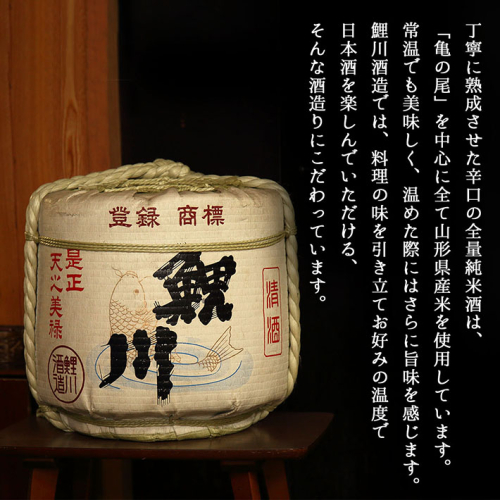 丁寧に熟成させた辛口の全量純米酒は、
「亀の尾」を中心に全て山形県産米を使用しています。
常温でも美味しく、温めた際にはさらに旨味を感じます。
鯉川酒造では、料理の味を引き立てお好みの温度で
日本酒を楽しんでいただける、
そんな酒造りにこだわっています。
登録 商標
鯉川
清酒
是正
天心美禄
鯉川
酒造